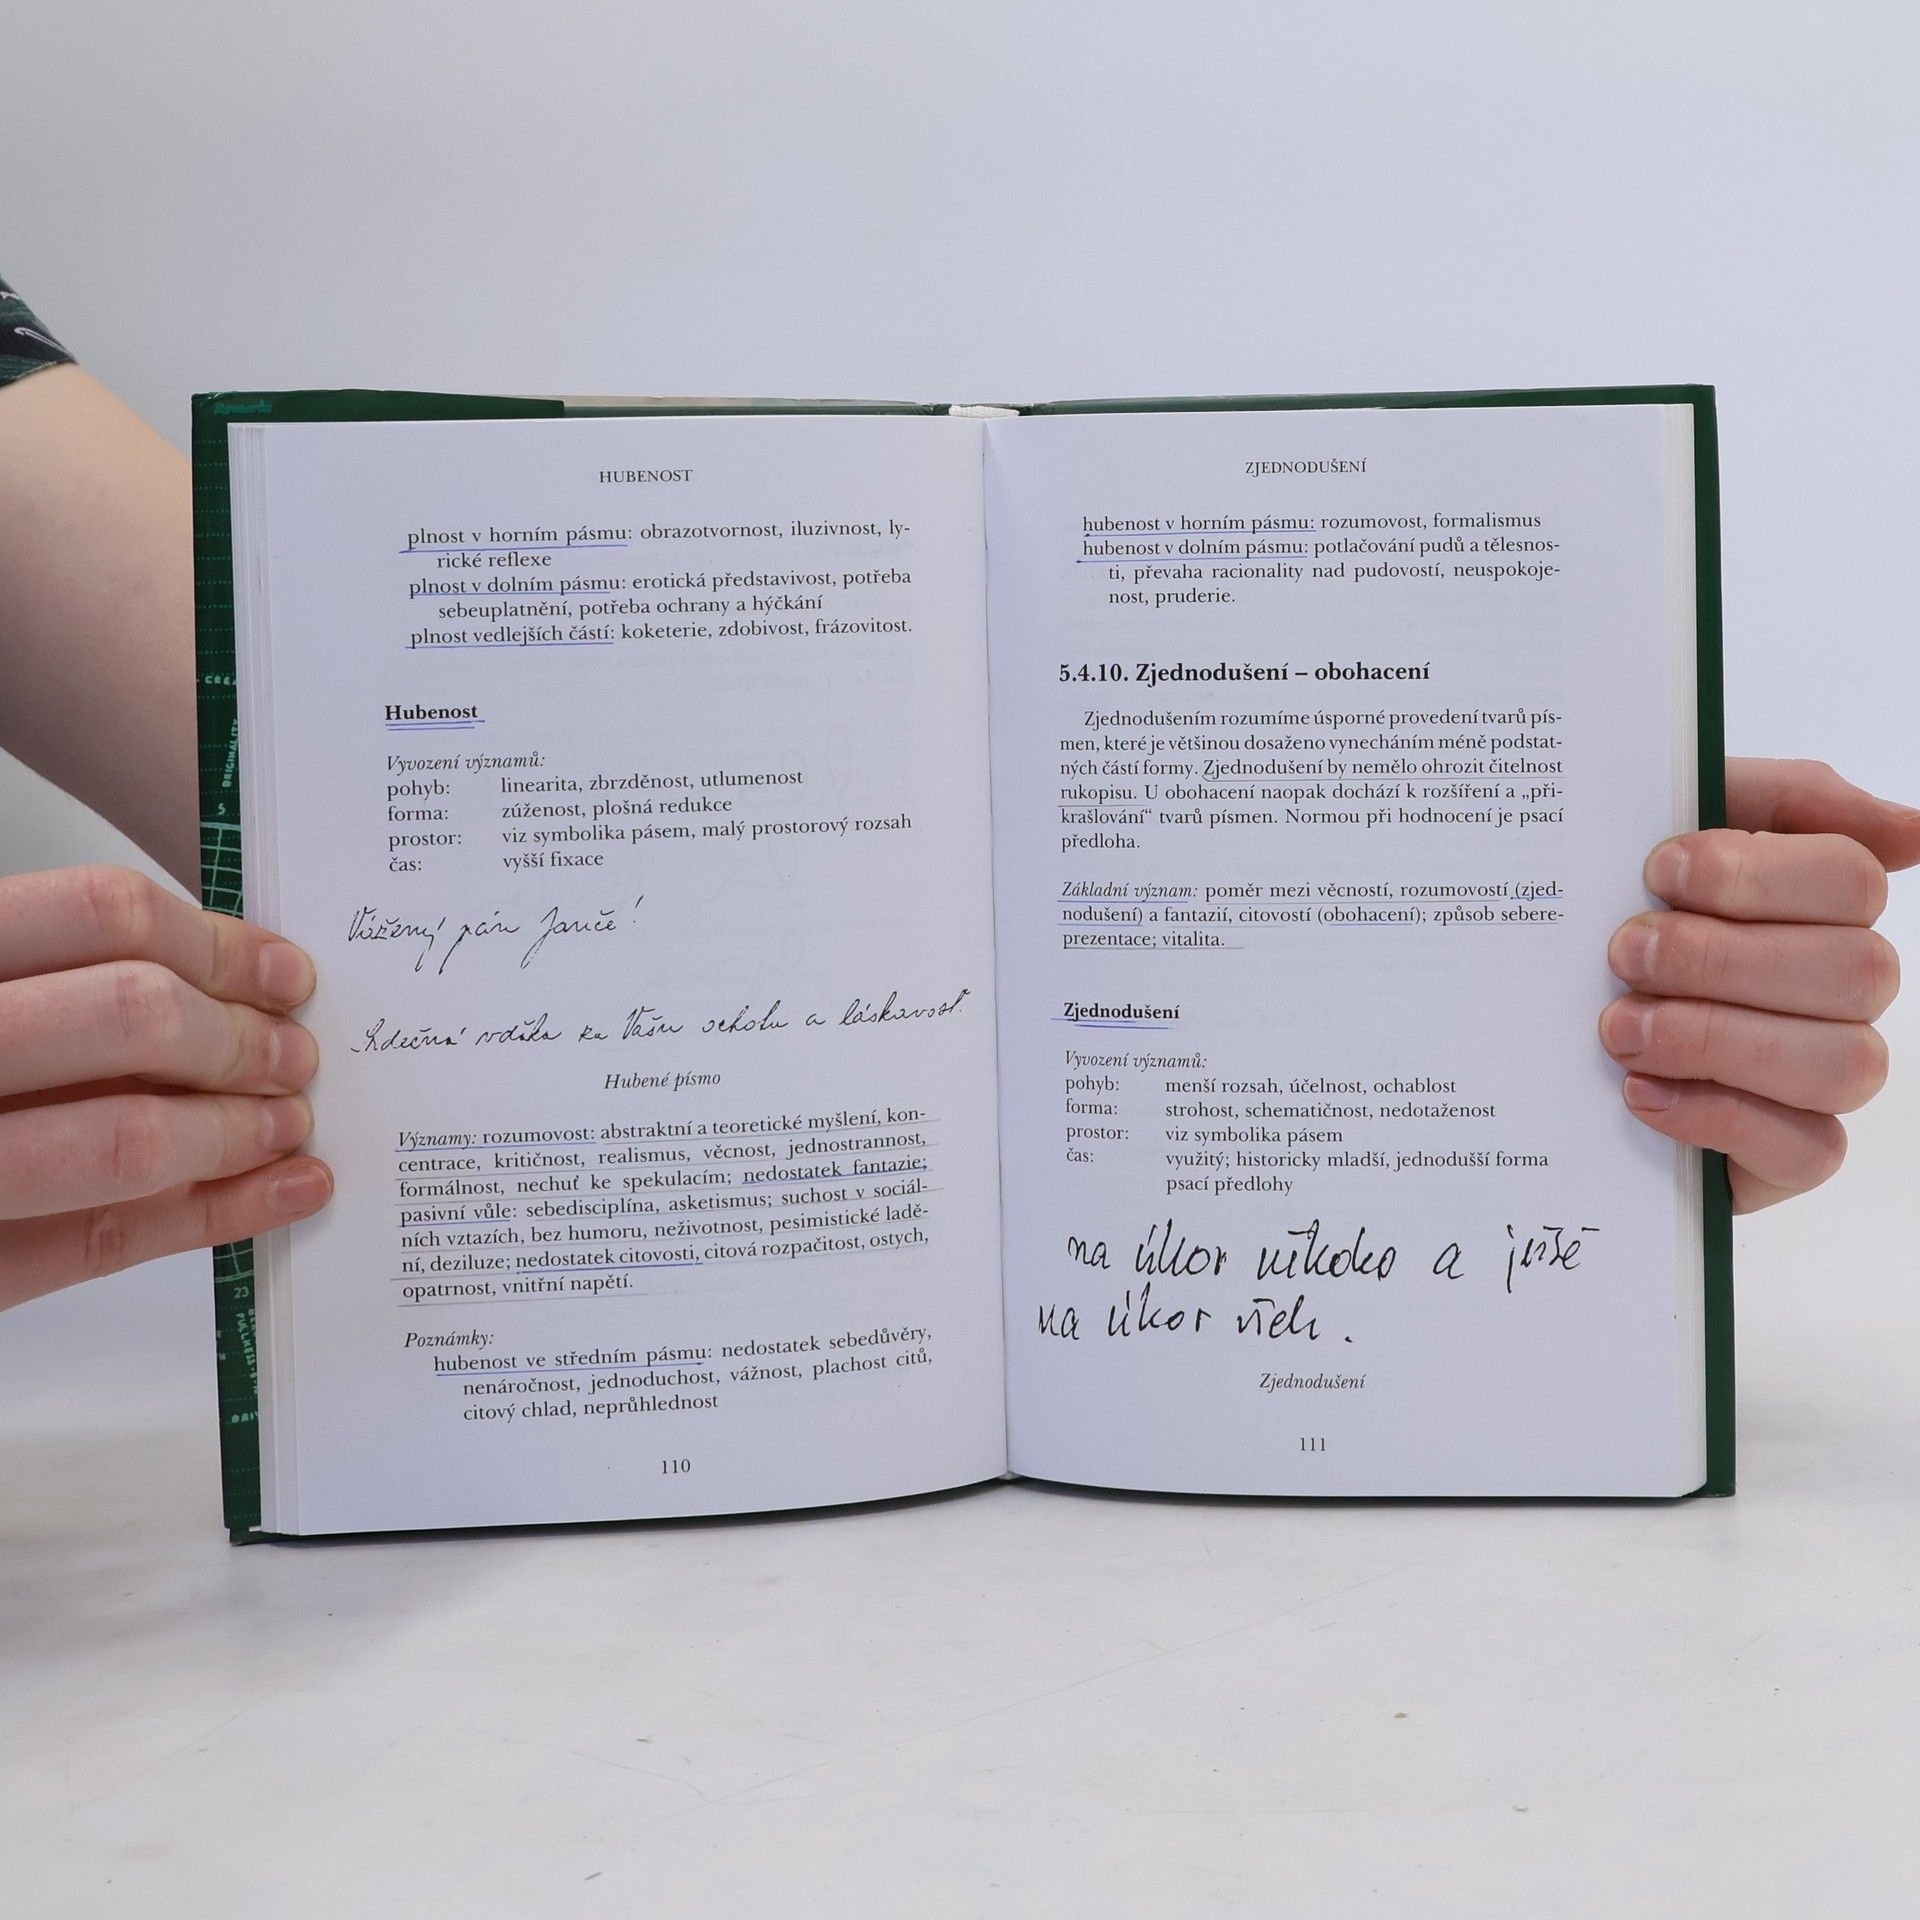 HUBENOST
plnost v horním pásmu: obrazotvornost, iluzivnost, ly-
rické reflexe
plnost v dolním pásmu: erotická představivost, potřeba
sebeuplatnění, potřeba ochrany a hýčkání
plnost vedlejších částí: koketerie, zdobivost, frázovitost.
Hubenost
Vyvození významů:
pohyb: linearita, zbrzděnost, utlumenost
forma: zúženost, plošná redukce
prostor: viz symbolika pásem, malý prostorový rozsah
čas: vyšší fixace
Vážený pán Janče!
Srdečná vďaka za Vašu ochotu a láskavosť.
Hubené písmo
Významy: rozumovost: abstraktní a teoretické myšlení, kon-
centrace, kritičnost, realismus, věcnost, jednostrannost,
formálnost, nechuť ke spekulacím; nedostatek fantazie;
pasivní vůle: sebedisciplína, asketismus; suchost v sociál-
ních vztazích, bez humoru, neživotnost, pesimistické ladě-
ní, deziluze; nedostatek citovosti, citová rozpačitost, ostych,
opatrnost, vnitřní napětí.
Poznámky:
hubenost ve středním pásmu: nedostatek sebedůvěry,
nenáročnost, jednoduchost, vážnost, plachost citů,
citový chlad, neprůhlednost
110
ZJEDNODUŠENÍ
hubenost v horním pásmu: rozumovost, formalismus
hubenost v dolním pásmu: potlačování pudů a tělesnos-
ti, převaha racionality nad pudovostí, neuspokoje-
nost, pruderie.
5.4.10. Zjednodušení – obohacení
Zjednodušením rozumíme úsporné provedení tvarů pís-
men, které je většinou dosaženo vynecháním méně podstat-
ných částí formy. Zjednodušení by nemělo ohrozit čitelnost
rukopisu. U obohacení naopak dochází k rozšíření a „při-
krašlování“ tvarů písmen. Normou při hodnocení je psací
předloha.
Základní význam: poměr mezi věcností, rozumovostí (zjed-
nodušení) a fantazií, citovostí (obohacení); způsob sebere-
prezentace; vitalita.
Zjednodušení
Vyvození významů:
pohyb: menší rozsah, účelnost, ochablost
forma: strohost, schematičnost, nedotaženost
prostor: viz symbolika pásem
čas: využitý; historicky mladší, jednodušší forma
psací předlohy
na úkor někoho a ještě
na úkor všech.
Zjednodušení
111